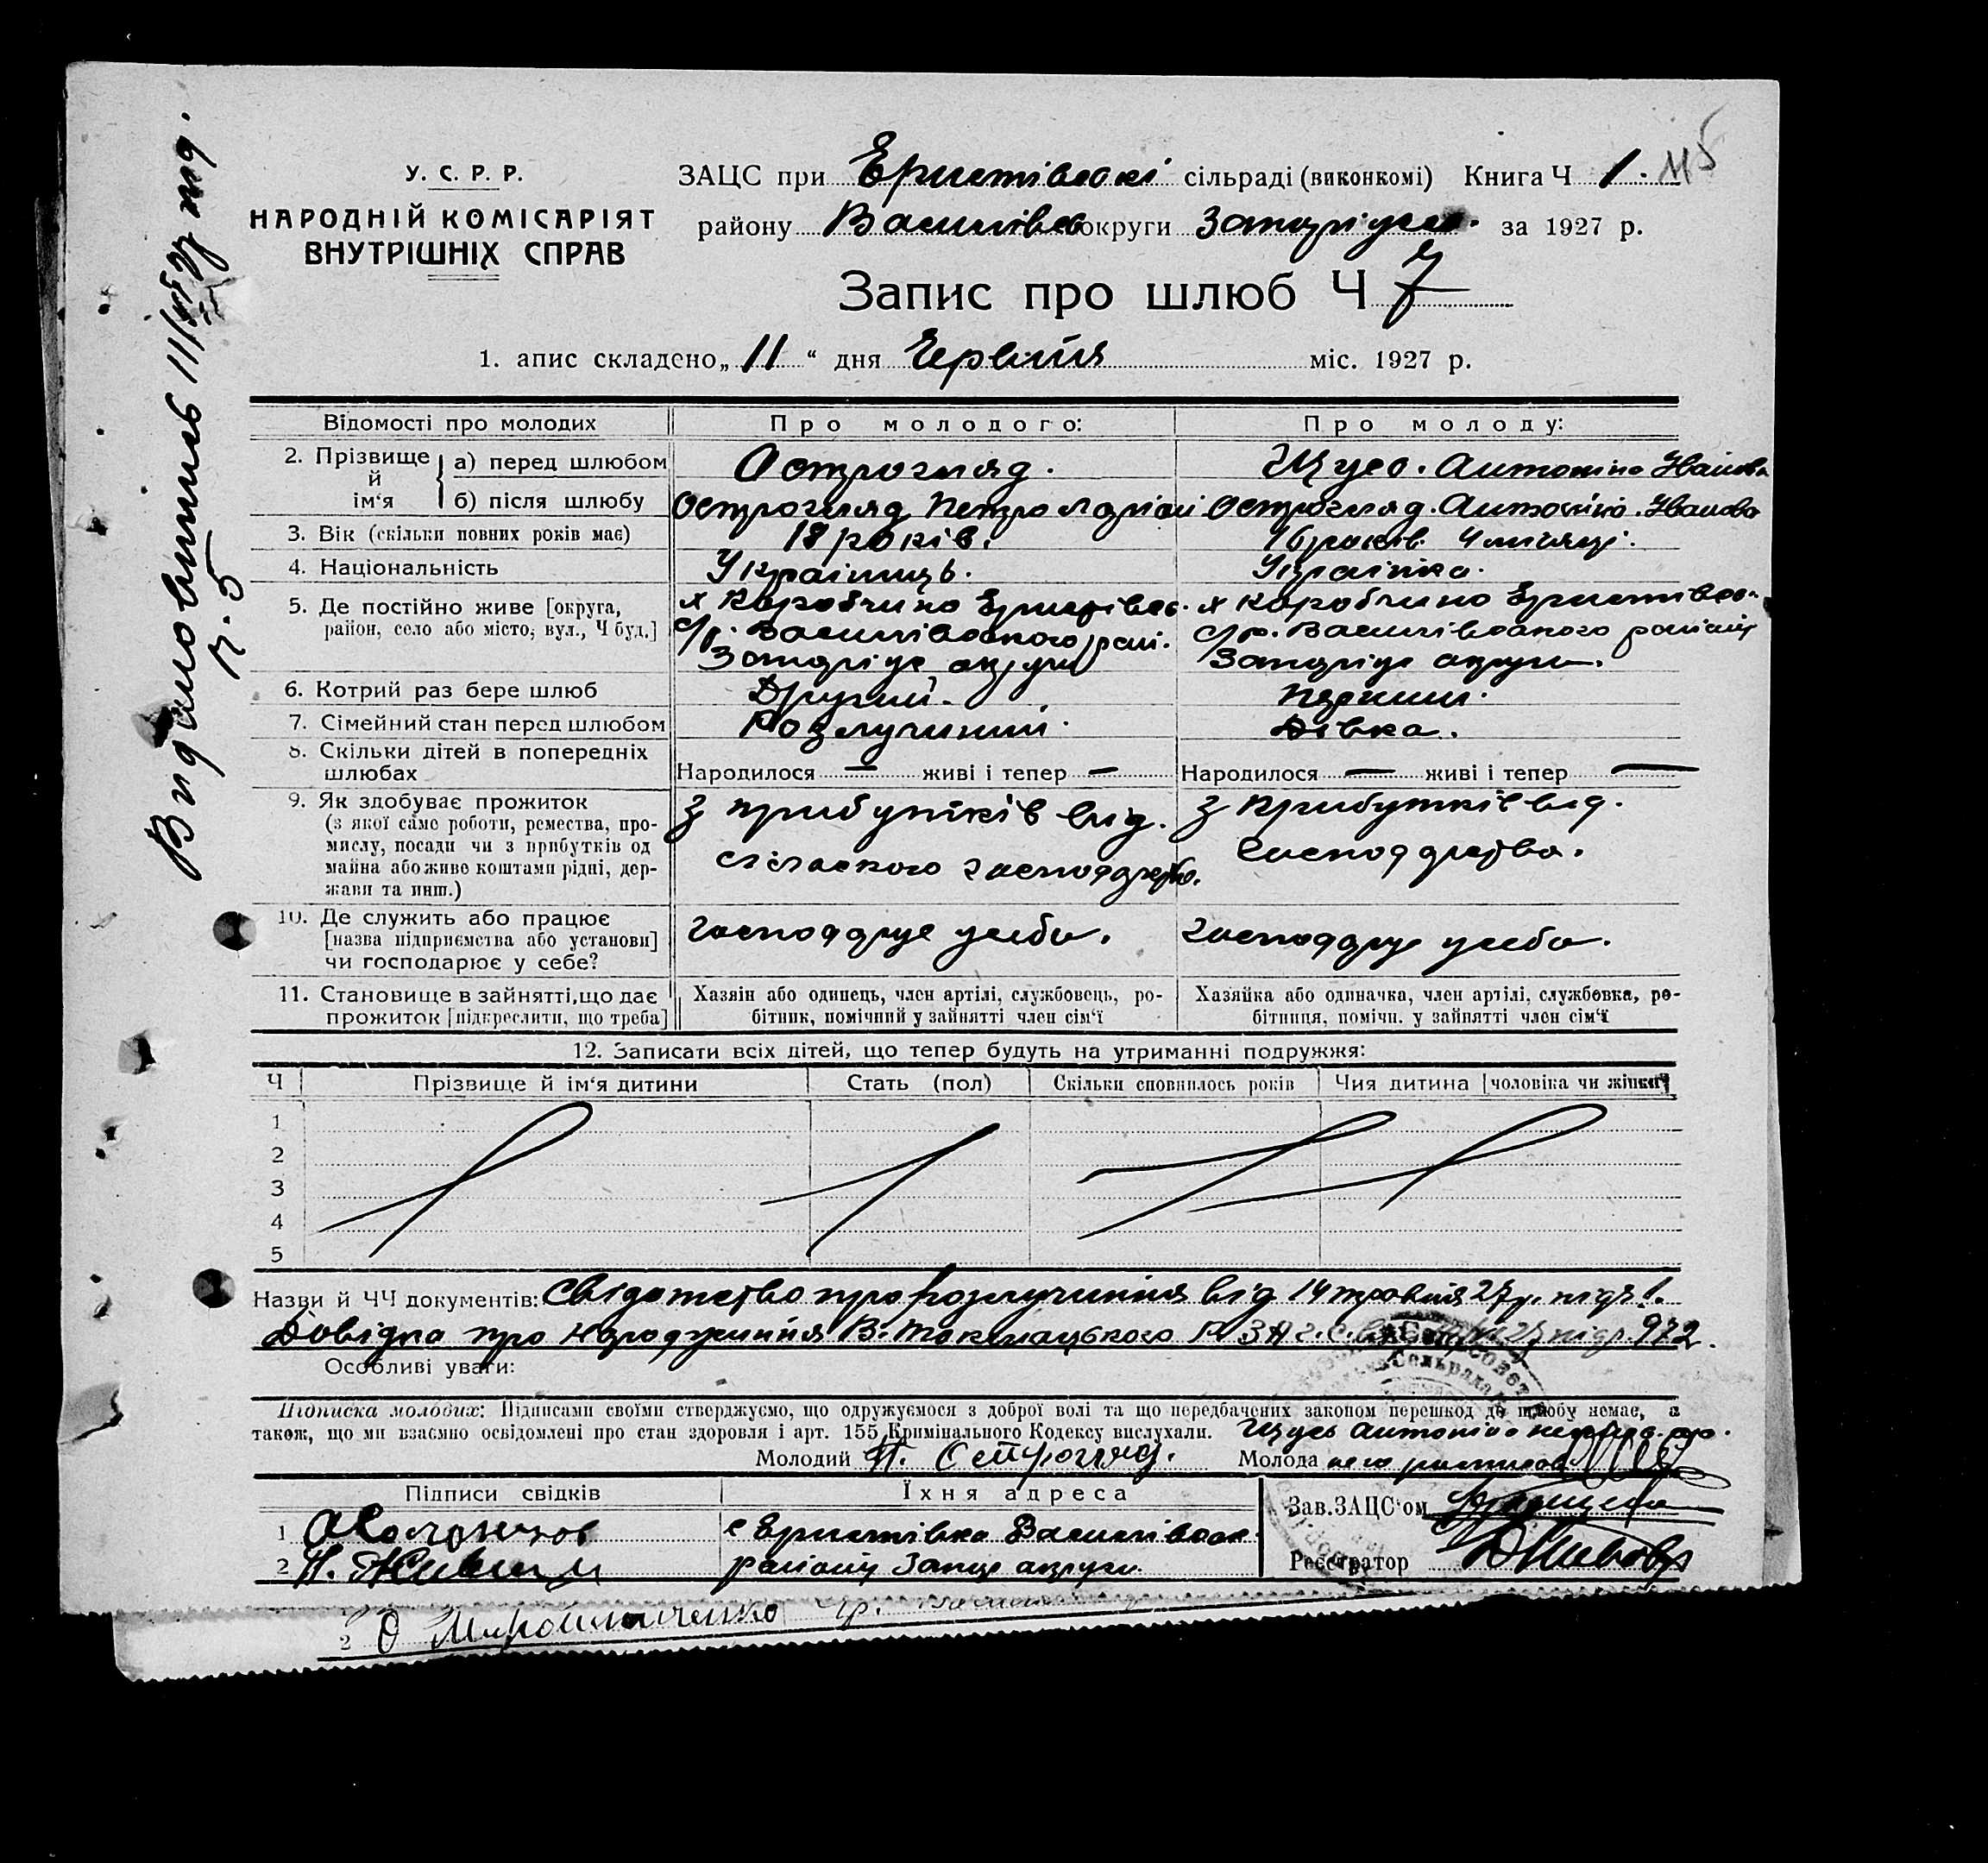 115
У. С. Р. Р.
НАРОДНІЙ КОМІСАРІЯТ
ВНУТРІШНІХ СПРАВ
ЗАЦС при Еристівські сільраді (виконкомі) Книга Ч 1.
району Василівсь округи Запоріжс. за 1927 р.
Запис про шлюб Ч 7
1. апис складено „ 11 “ дня Червня міс. 1927 р.
Видано витяг 11/
ч. 5
Відомості про молодих Про молодого: Про молоду:
2. Прізвище й ім‘я
а) перед шлюбом Острогляд. Щусь. Антонина Іванова
б) після шлюбу Острогляд Петро Остроогляд. Антоніна. Іванова
3. Вік (скільки повних років має) 18 років. 16 років 4 місяці.
4. Національність Українець. Українка.
5. Де постійно живе [округа, район, село або місто, вул., Ч буд.]
х Коробчино Еристівсь. х Коробчино Еристівсь.
с/р. Василівського рай. с/р. Василівського району
Запоріж округи Запоріж округи.
6. Котрий раз бере шлюб Другий. Перший.
7. Сімейний стан перед шлюбом Розлучиний. Дівка.
8. Скільки дітей в попередніх шлюбах Народилося — живі і тепер — Народилося — живі і тепер —
9. Як здобуває прожиток
(з якої саме роботи, ремества, про-
мислу, посади чи з прибутків од
майна або живе коштами рідні, дер-
жави та инш.)
з прибутків від. з прибутків від.
сільського господарств. господарства.
10. Де служить або працює
[назва підприємства або установи]
чи господарює у себе?
господарує у себе. господарує у себе.
11. Становище в зайнятті, що дає
прожиток [підкреслити, що треба]
Хазяін або одинець, член артілі, службовець, ро-
бітник, помічний у зайнятті член сім‘ї
Хазяйка або одиначка, член артілі, службовка, ро-
бітниця, помічн. у зайнятті член сім‘ї
12. Записати всіх дітей, що тепер будуть на утриманні подружжя:
Ч Прізвище й ім‘я дитини Стать (пол) Скільки сповнилось років Чия дитина [чоловіка чи жінки]
1
2
3
4
5
Назви й ЧЧ документів: Свідотство про розлучиння від 14 травня 27 р. під ч 1.
Довідка про народжиння В. Токмацького 972.
Особливі уваги:
Підписка молодих: Підписами своїми стверджуємо, що одружуємося з доброї волі та що передбачених законом перешкод до шлюбу немає, а
також, що ми взаємно освідомлені про стан здоровля і арт. 155 Кримінального Кодексу вислухали. Щусь Антоніна
Молодий П. Острогляд. Молода
Підписи свідків Їхня адреса
Зав. ЗАЦС‘ом
1 с Еристівка Василівськ.
2 району Запор округи
Реєстратор
2 О Мирошниченко